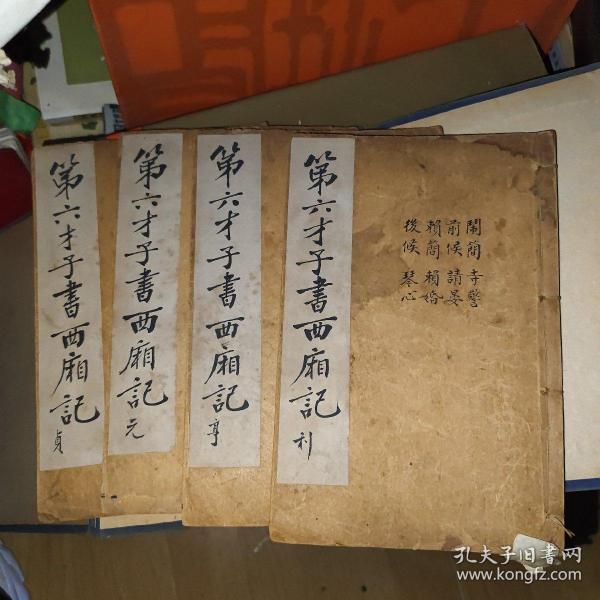 第六才子書西廂記 貞
第六才子書西廂記 元
第六才子書西廂記 亨
第六才子書西廂記 利
鬧簡 寺警
前候 請宴
賴簡 賴婚
後候 琴心
孔夫子旧书网
www.kongfz.com